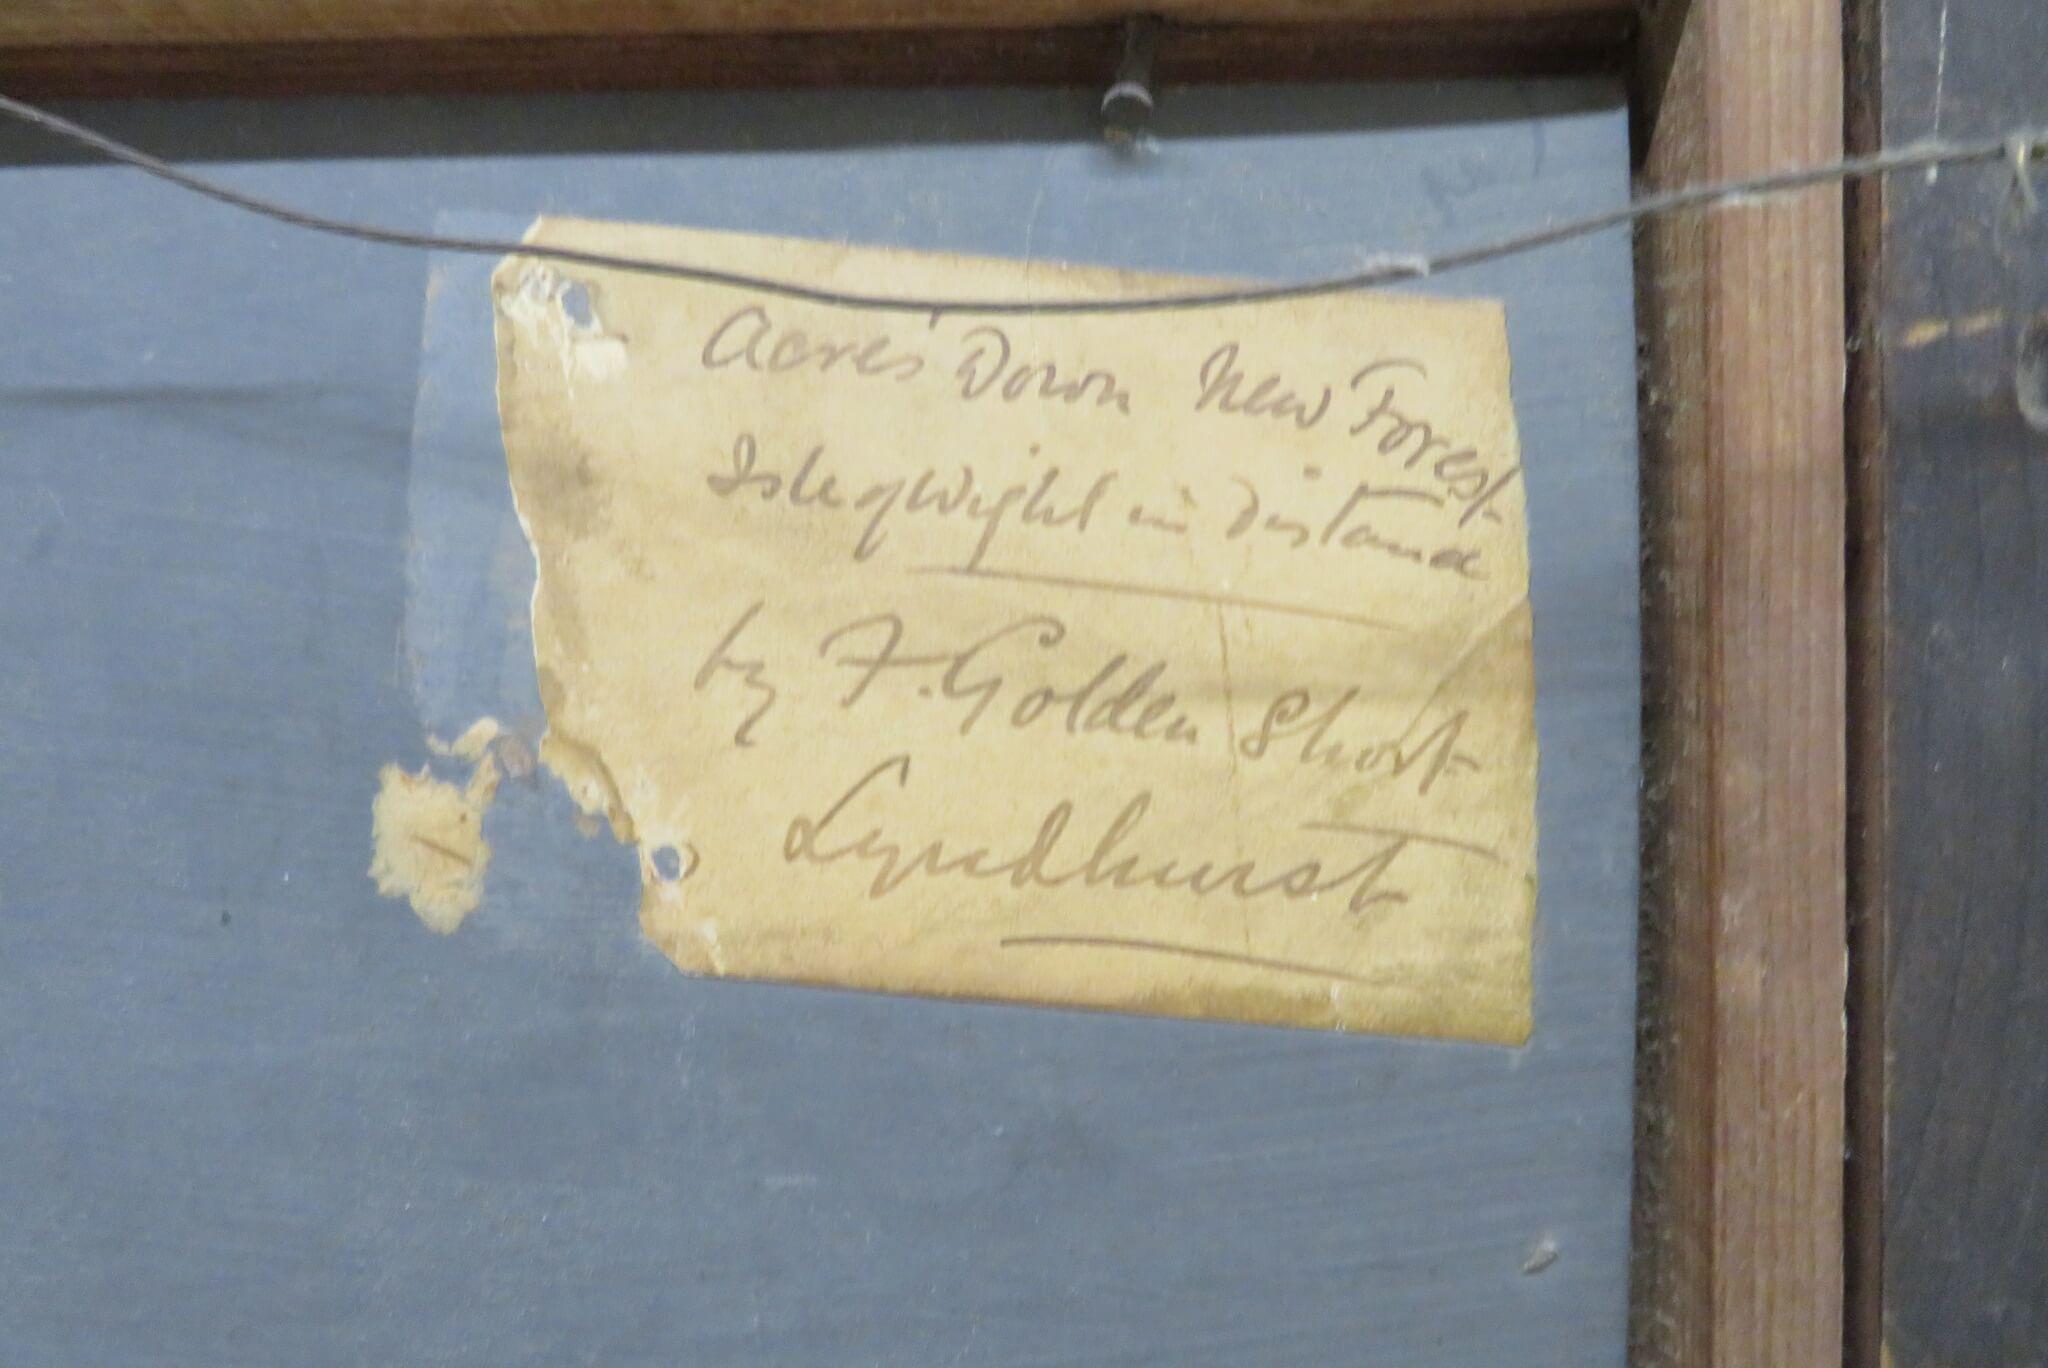 Acres' Down New Forest
Isle of Wight in distance
by F. Golden Short
Lyndhurst